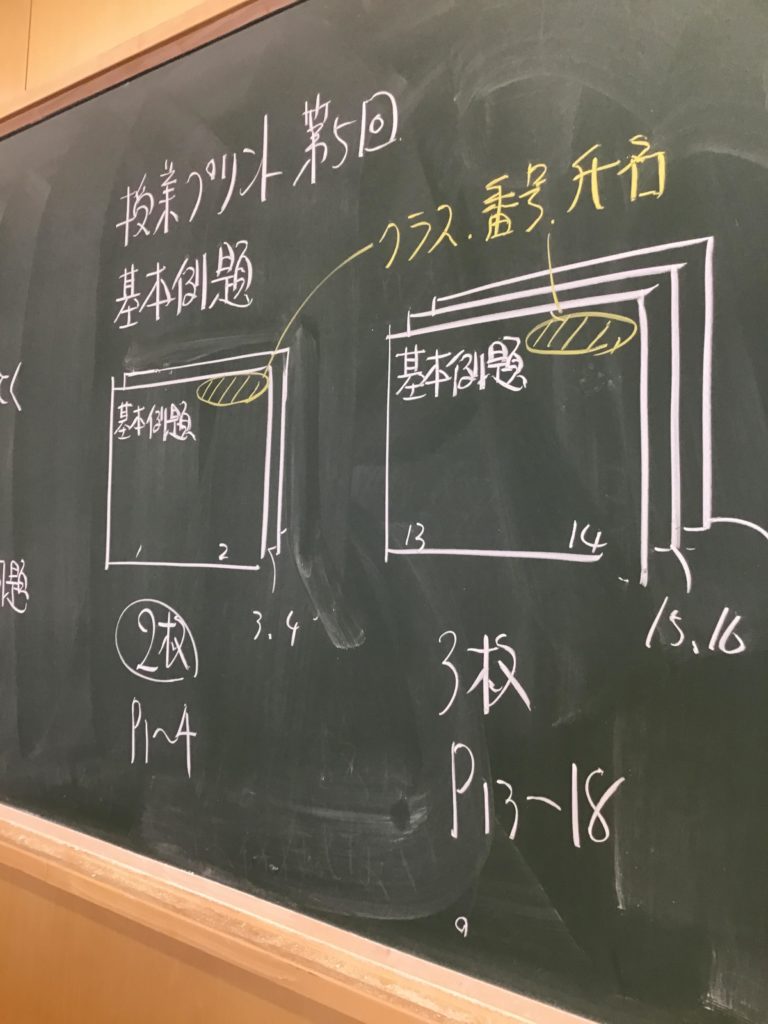 授業プリント 第5回
クラス、番号、氏名
基本例題
基本例題
1 2
3、4
2枚
P1~4
基本例題
13 14
15、16
3枚
P13~18
く
題